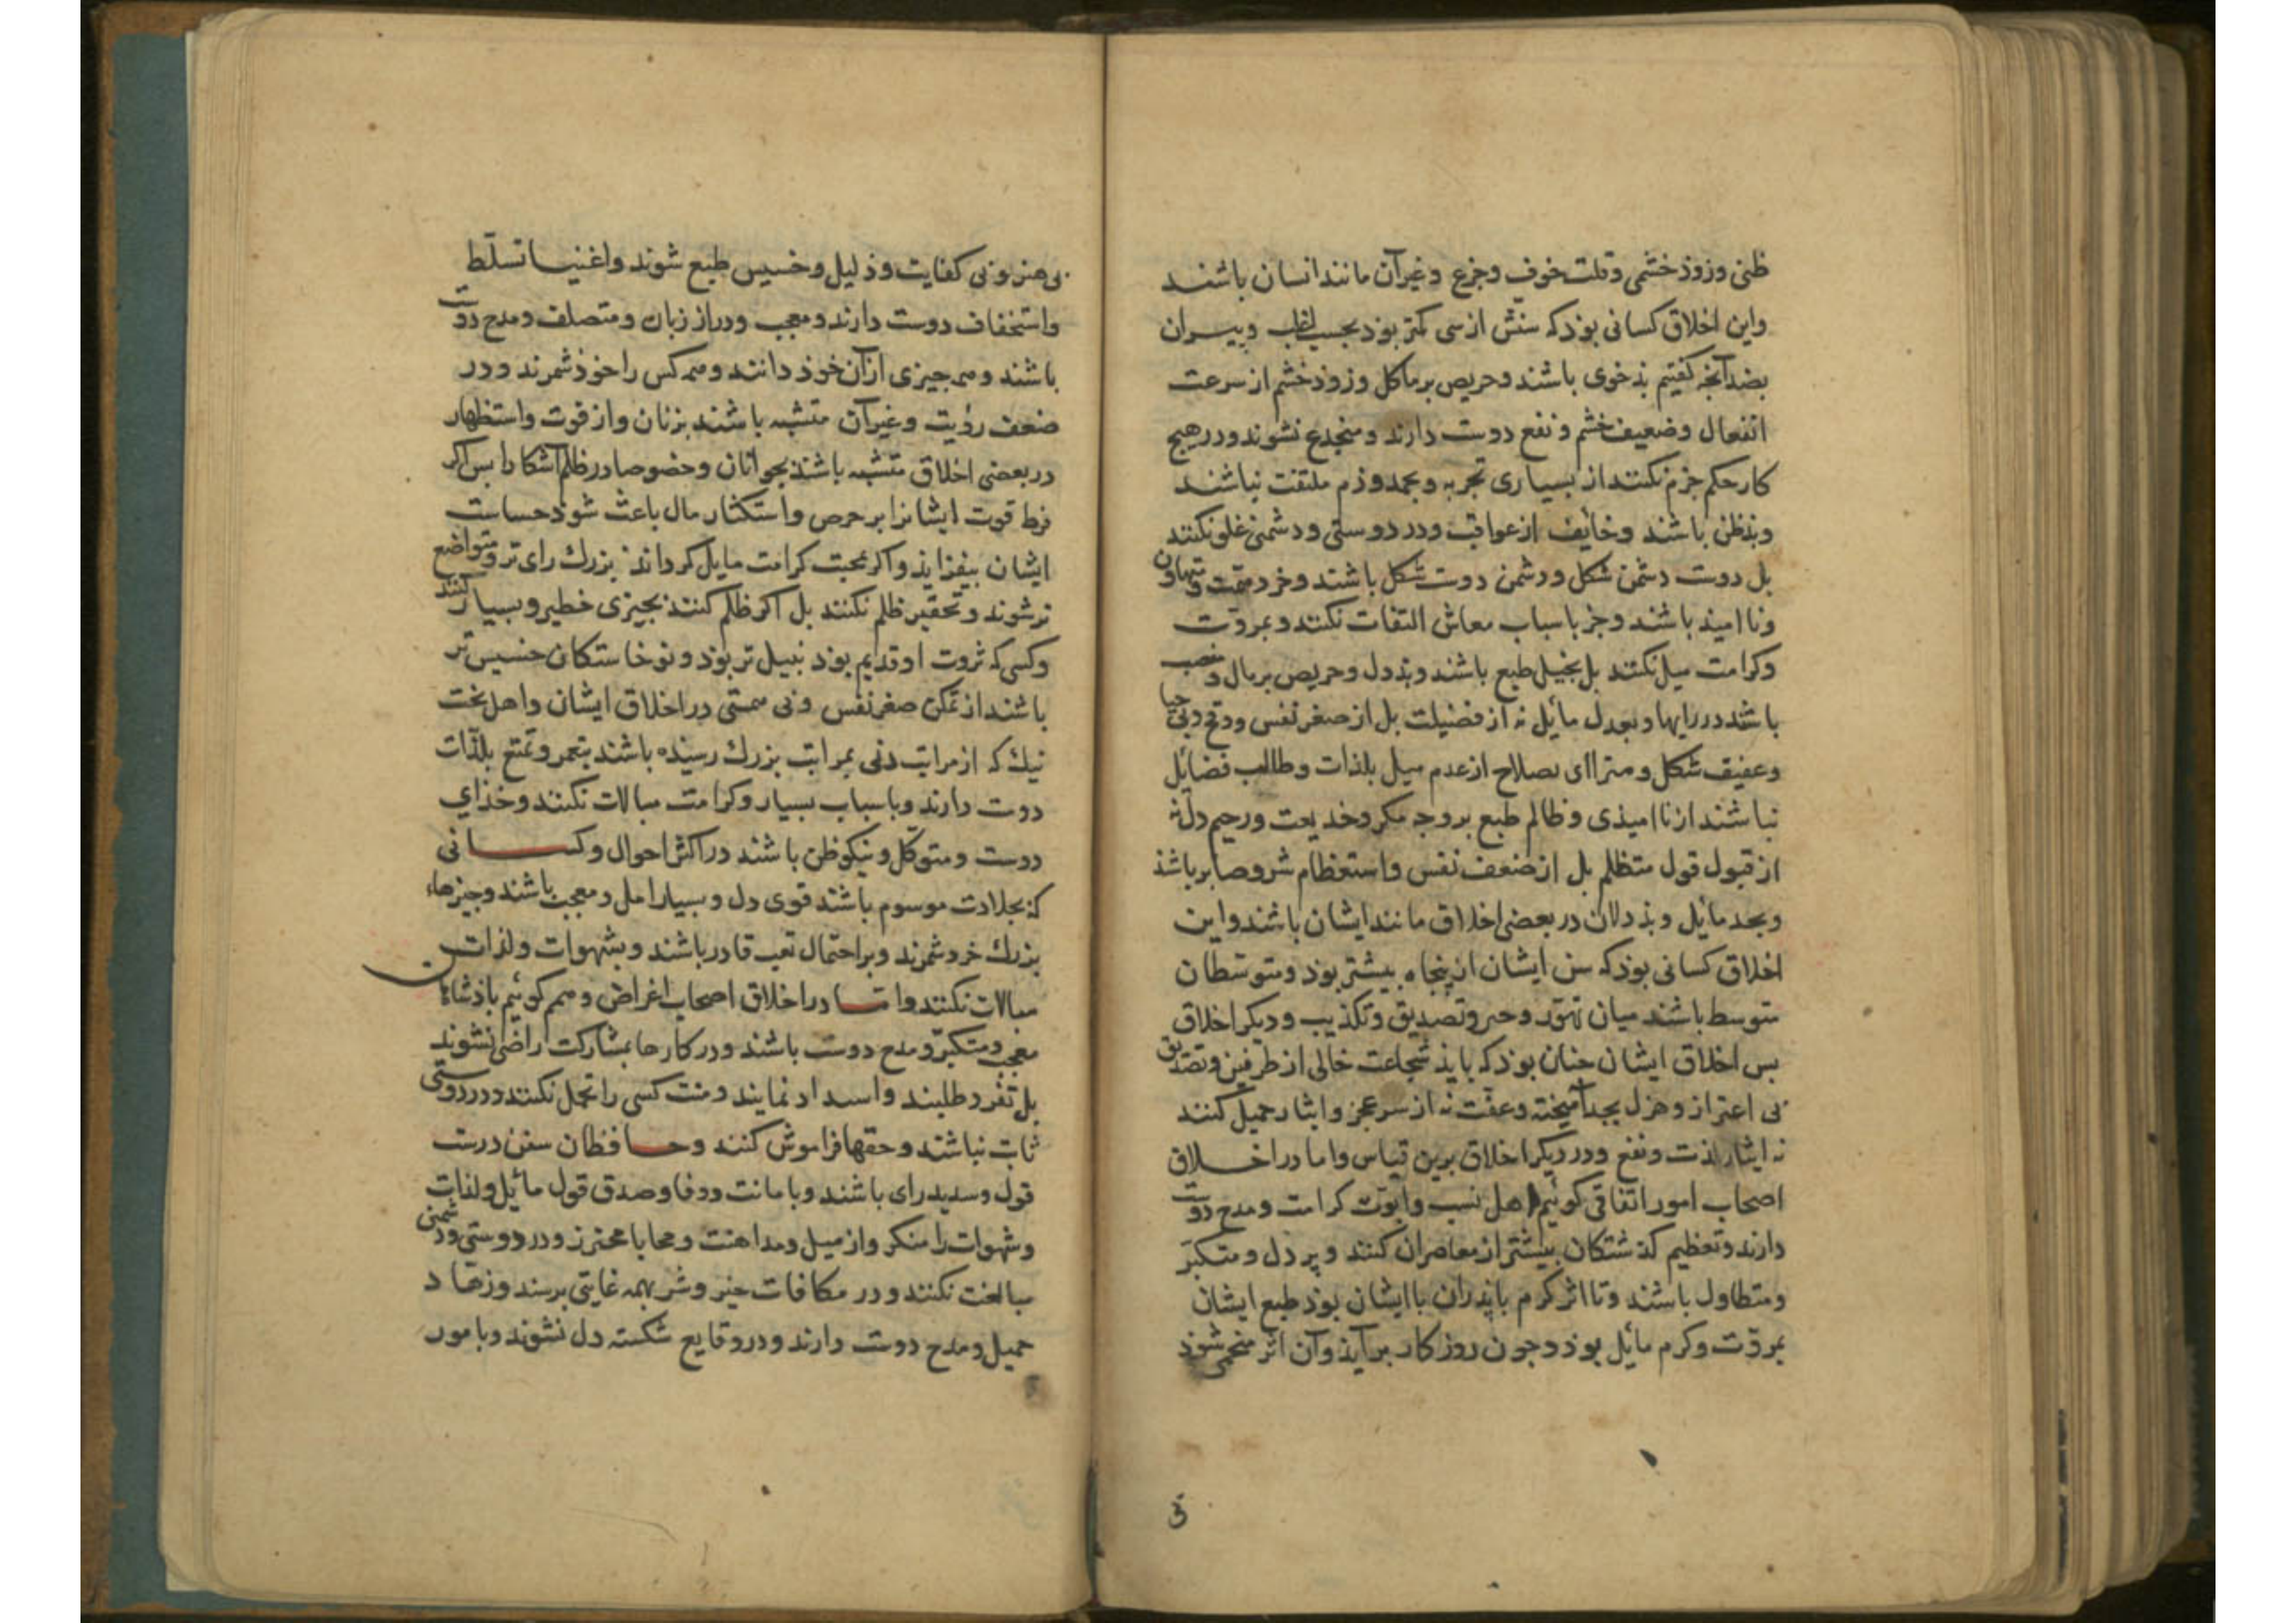 ظنی وزوذ خشمی وقلت خوف وجزع وغیرآن مانند انسان باشند
واین اخلاق کسانی بوذ که سنش از سی کمتر بوذ بحسب اغلب وپیران
بضد آنچه کفتیم بذخوی باشند وحریص بر مآکل وزوذ خشم از سرعت
انفعال وضعیف خشم ونفع دوست دارند ومنخدع نشوند ودر هیچ
کار حکم جزم نکنند از بسیاری تجربه وبحمد وذم ملتفت نباشند
وبذظن باشند وخایف از عواقب ودر دوستی ودشمنی غلو نکنند
بل دوست دشمن شکل ودشمن دوست شکل باشند وخرد همت ومتهاون
ونا امیذ باشند وجز باسباب معاش التفات نکنند وبمروت
وکرامت میل نکنند بل بخیل طبع باشند وبذدل وحریص بر مال و
باشند در رایها وبعدل مائل نه از فضیلت بل از صغر نفس ووقح وبی حیا
وعفیف شکل ومترا ای بصلاح از عدم میل بلذات وطالب فضایل
نباشند از نا امیذی وظالم طبع بر وجه مکر وخدیعت ورحیم دل نه
از قبول قول متظلم بل از ضعف نفس واستعظام شر وصابر باشند
وبجد مائل وبذدلان در بعضی اخلاق مانند ایشان باشند واین
اخلاق کسانی بوذ که سن ایشان از پنجاه بیشتر بوذ ومتوسطان
متوسط باشند میان تهور وجبن وتصدیق وتکذیب ودیکر اخلاق
بس اخلاق ایشان چنان بوذ که بایذ شجاعت خالی از طرفین وتصدیق
بی اعتراز وهزل بجد آمیخته وعفت نه از سر عجز وایثار جمیل کنند
نه ایثار لذت ونفع ودر دیکر اخلاق برین قیاس واما در اخلاق
اصحاب امور اتفاقی کوئیم اهل نسب وابوت کرامت ومدح دوست
دارند وتعظیم کذشتکان بیشتر از معاصران کنند وپر دل ومتکبر
ومتطاول باشند وتا اثر کرم با پذران با ایشان بوذ طبع ایشان
بمروت وکرم مائل بوذ وچون روزکار برآیذ وآن اثر منمحی شوذ
بی
بی هنر وبی کفایت وذلیل وخسیس طبع شوند واغنیا تسلط
واستخفاف دوست دارند ومعجب ودراز زبان ومتصلف ومدح دوست
باشند وهمه چیزی از آن خوذ دانند وهمه کس را حوذ شمرند ودر
ضعف رؤیت وغیرآن متشبه باشند بزنان واز قوت واستظهار
در بعضی اخلاق متشبه باشند بجوانان وخصوصا در ظلم آشکارا بس اکر
فرط قوت ایشانرا بر حرص واستکثار مال باعث شوذ خساست
ایشان بیفزایذ واکر بمحبت کرامت مایل کرداند بزرك رای تر ومتواضع
تر شوند وبحقیر ظلم نکنند بل اکر ظلم کنند بچیزی خطیر وبسیار کنند
وکسی که ثروت او قدیم بوذ نبیل تر بوذ ونوخاستکان خسیس تر
باشند از تمکن صغر نفس وبی همتی در اخلاق ایشان واهل بخت
نیك که از مراتب دنی بمراتب بزرك رسیده باشند بتعمر وتمتع بلذات
دوست دارند وباسباب بسیار وکرامت مبالات نکنند وخذای
دوست ومتوکل ونیکو ظن باشند در اکثر احوال وکسانی
که بجلادت موسوم باشند قوی دل وبسیار امل ومعجب باشند وچیزهاء
بزرك خرد شمرند وبر احتمال تعب قادر باشند وبشهوات ولذات
مبالات نکنند واما در اخلاق اصحاب اغراض وهمم کوئیم باذشاهان
معجب ومتکبر ومدح دوست باشند ودر کارها بمشارکت راضی نشوند
بل تفرد طلبند واسبداد نمایند ومنت کسی را تحمل نکنند ودر دوستی
ثابت نباشند وحقها فراموش کنند وحافظان سنن درست
قول وسدید رای باشند وبامانت ووفا وصدق قول مائل ولذات
وشهوات را منکر واز میل ومداهنت ومحابا محترز ودر دوستی ودشمنی
مبالغت نکنند ودر مکافات خیر وشر بهمه غایتی برسند وزهاد
جمیل ومدح دوست دارند ودر وقایع شکسته دل نشوند وبامور